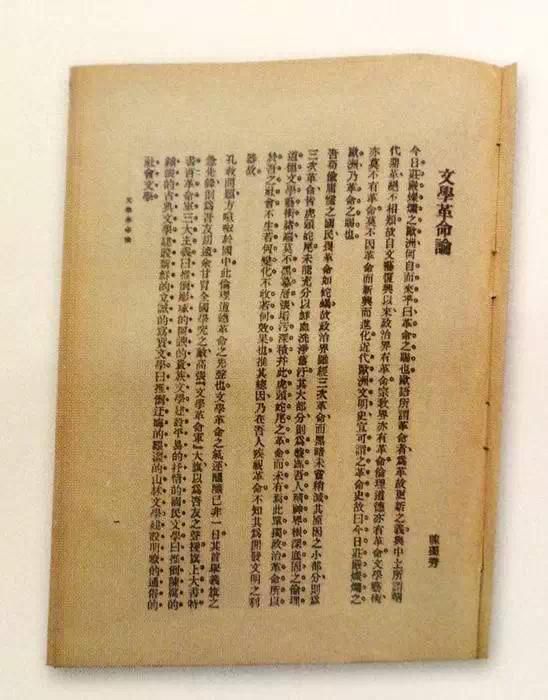 文學革命論
陳獨秀
今日莊嚴燦爛之歐洲何自而來乎曰革命之賜也歐語所謂革命者爲革故更新之義與中土所謂朝
代鼎革絕不相類故自文藝復興以來政治界有革命宗敎界亦有革命倫理道德亦有革命文學藝術
亦莫不有革命莫不因革命而新興而進化近代歐洲文明史宜可謂之革命史故曰今日莊嚴燦爛之
歐洲乃革命之賜也
吾苟偷庸懦之國民畏革命如蛇蝎故政治界雖經三次革命而黑暗未嘗稍減其原因之小部分則爲
三次革命皆虎頭蛇尾未能充分以鮮血洗淨舊汙其大部分則爲盤踞吾人精神界根深底固之倫理
道德文學藝術諸端莫不黑幕層張垢汙深積並此虎頭蛇尾之革命而未有焉此單獨政治革命所以
於吾之社會不生若何變化不收若何效果也推其總因乃在吾人疾視革命不知其爲開發文明之利
器故
孔敎問題方喧呶於國中此倫理道德革命之先聲也文學革命之氣運醞釀已非一日其首舉義旗之
急先鋒則爲吾友胡適余甘冒全國學究之敵高張「文學革命軍」大旗以爲吾友之聲援旗上大書特
書吾革命軍三大主義曰推倒彫琢的阿諛的貴族文學建設平易的抒情的國民文學曰推倒陳腐的
鋪張的古典文學建設新鮮的立誠的寫實文學曰推倒迂晦的艱澀的山林文學建設明瞭的通俗的
社會文學
文學革命論
一